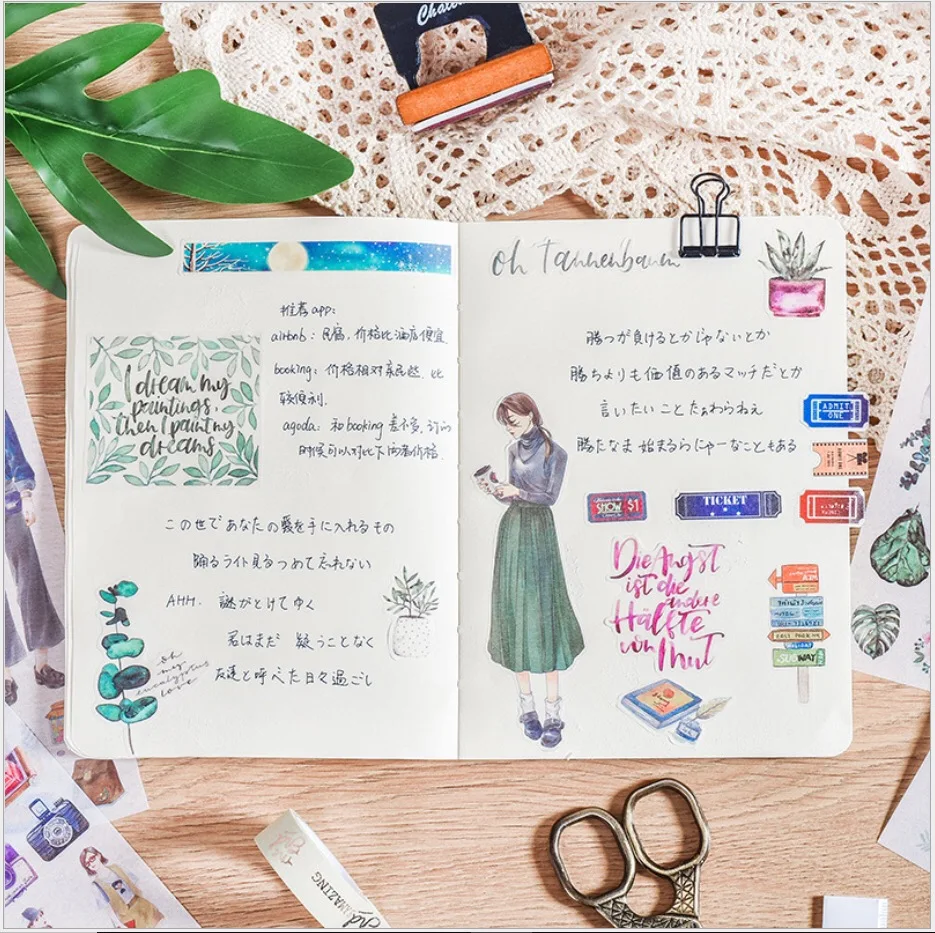 oh Tannenbaum
推荐app:
airbnb: 民宿,价格比酒店便宜
booking: 价格相对亲民些、比
较便利.
agoda: 和booking差不多,订的
时候可以对比下两者价格.
I dream my
paintings,
then I paint my
dreams
この世であなたの愛を手に入れるもの
踊るライト見つめて忘れない
AHH. 謎がとけてゆく
君はまだ 疑うことなく
友達と呼べた日々過ごし
oh
my
eucalyptus
love
勝つが負けるとかじゃないとか
勝ちよりも価値のあるマッチだとか
言いたいことたぁわらねぇ
勝たなま始まららにゃーなこともある
ADMIT
ONE
SHOW $1
TICKET
Die Angst
ist die
andere
Hälfte
von Mut
SUBWAY
AMAZING